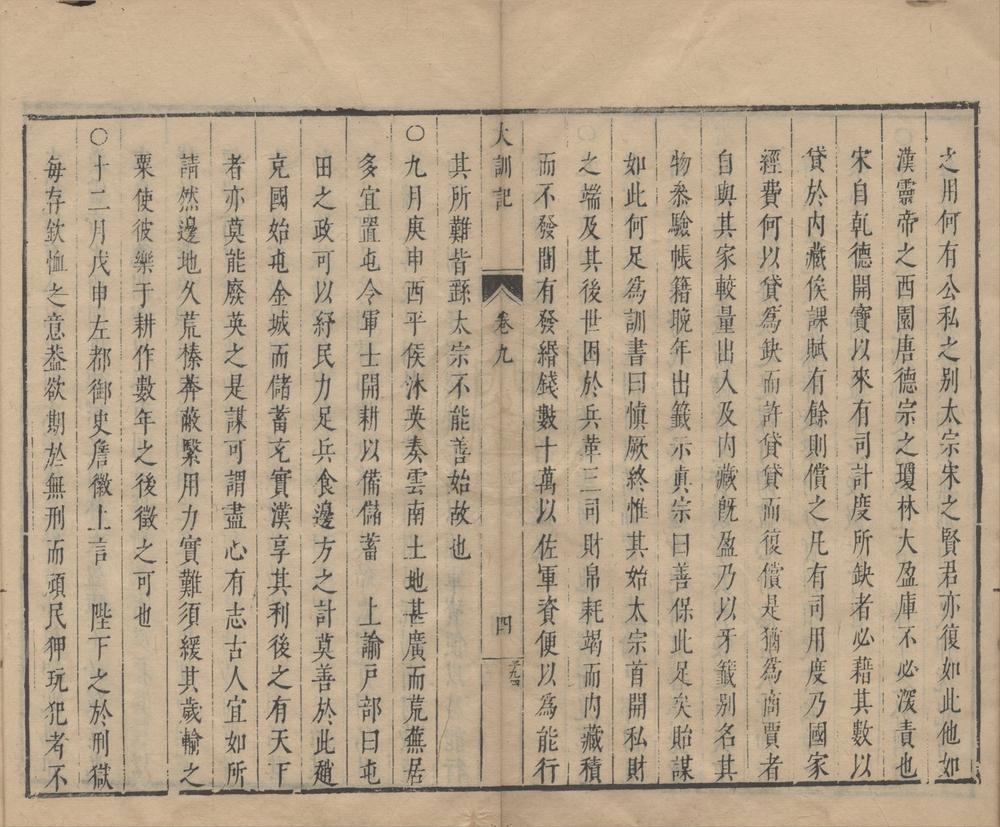 之用何有公私之别太宗宋之賢君亦復如此他如
漢靈帝之西園唐德宗之瓊林大盈庫不必深責也
宋自乾德開寶以來有司計度所缺者必藉其數以
貸於内藏俟課賦有餘則償之凡有司用度乃國家
經費何以貸爲缺而許貸貸而復償是猶爲商賈者
自與其家較量出入及内藏既盈乃以牙籤别名其
物叅驗帳籍晚年出籤示真宗曰善保此足矣貽謀
如此何足爲訓書曰慎厥終惟其始太宗首開私財
之端及其後世困於兵革三司財帛耗竭而内藏積
而不發間有發緡錢數十萬以佐軍資便以爲能行
大訓記 卷九 四
其所難皆繇太宗不能善始故也
○九月庚申西平侯沐英奏雲南土地甚廣而荒蕪居
多宜置屯令軍士開耕以備儲蓄 上諭戸部曰屯
田之政可以紓民力足兵食邊方之計莫善於此趙
充國始屯金城而儲蓄充實漢享其利後之有天下
者亦莫能廢英之是謀可謂盡心有志古人宜如所
請然邊地久荒榛莽蔽翳用力實難須緩其歲輸之
粟使彼樂于耕作數年之後徵之可也
○十二月戊申左都御史詹徽上言 陛下之於刑獄
每存欽恤之意葢欲期於無刑而頑民狎玩犯者不